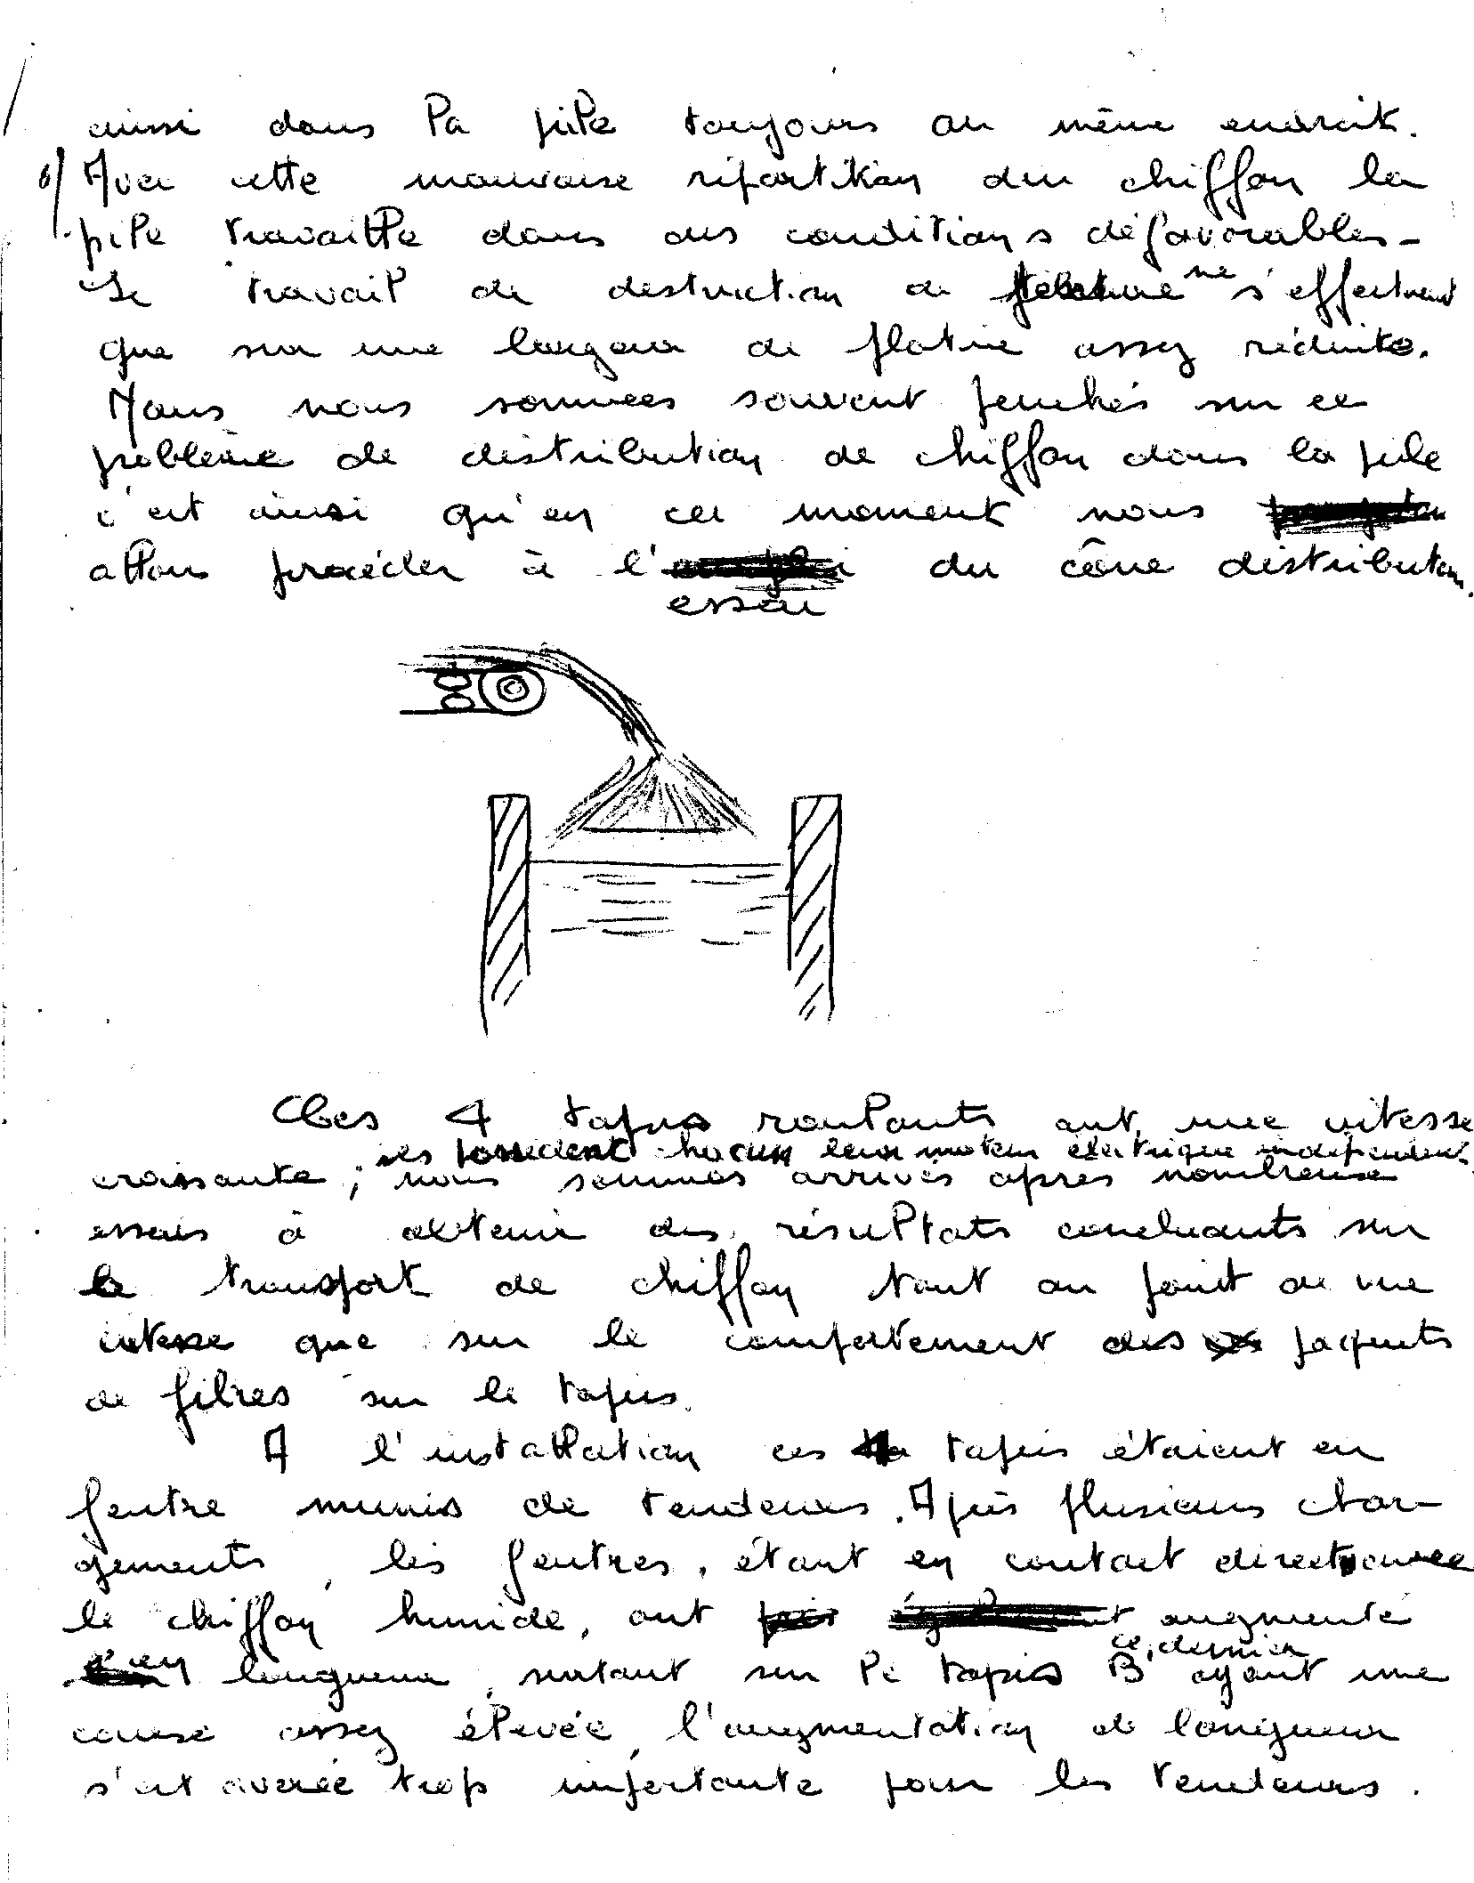 ainsi dans la pile toujours au même endroit.
6/ Avec cette mauvaise répartition du chiffon la
pile travaille dans des conditions défavorables -
Le travail de destruction de ne s'effectuent
que sur une longueur de platine assez réduite.
Nous nous sommes souvent penchés sur ce
problème de distribution de chiffon dans la pile
c'est ainsi qu'en ce moment nous
allons procéder à l' du cône distributeur.
essai
Ces 4 tapis roulants ont une vitesse
ils possèdent chacun leur moteur électrique indépendant
croissante ; nous sommes arrivés après nombreuse
essais à obtenir des résultats concluants sur
le transport de chiffon tant au point de vue
vitesse que sur le comportement des paquets
de fibres sur le tapis.
A l'installation ces tapis étaient en
feutre munis de tendeurs. Après plusieurs char-
gements, les feutres, étant en contact direct avec
le chiffon humide, ont augmenté
ce dernier
en longueur, surtout sur le tapis B ayant une
course assez élevée, l'augmentation de longueur
s'est avérée trop importante pour les tendeurs.